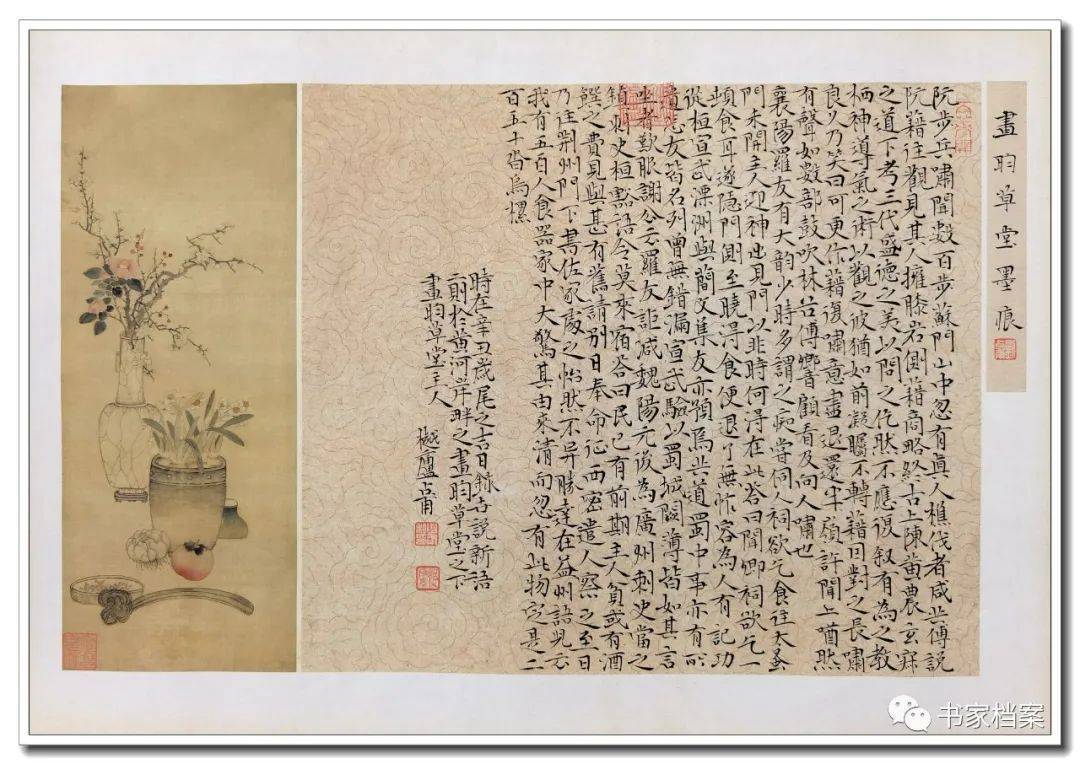 畫昀草堂墨痕
阮步兵嘯聞數百步蘇門山中忽有真人樵伐者咸共傳說
阮籍往觀見其人擁膝岩側籍商略終古上陳黃農玄寂
之道下考三代盛德之美以問之仡然不應復叙有為之教
栖神導氣之術以觀之彼猶如前凝矚不轉籍因對之長嘯
良久乃笑曰可更作籍復嘯意盡退還半嶺許聞上㗲然
有聲如數部鼓吹林谷傳響顧看乃向人嘯也
襄陽羅友有大韵少時多謂之痴嘗伺人祠欲乞食往太蚤
門未開主人迎神出見問以非時何得在此答曰聞卿祠欲乞一
頓食耳遂隱門側至曉得食便退了無怍容為人有記功
從桓宣武溧洲與簡文集友亦預焉共道蜀中事亦有所
遺忘友皆名列曾無錯漏宣武驗以蜀城闕簿皆如其言
坐者歎服謝公云羅友詎减魏陽元後為廣州刺史當之
鎮刺史桓豁語令莫來宿答曰民已有前期主人貧或有酒
饌之費見與甚有舊請別日奉命征西密遣人察之至日
乃往荆州門下書佐家處之怡然不異勝達在益州語兒云
我有五百人食器家中大驚其由來清而忽有此物定是二
百五十沓烏樏
時在辛丑歲尾之吉日錄古說新語
二則於黃河岸畔之畫昀草堂之下
畫昀草堂主人
書家档案